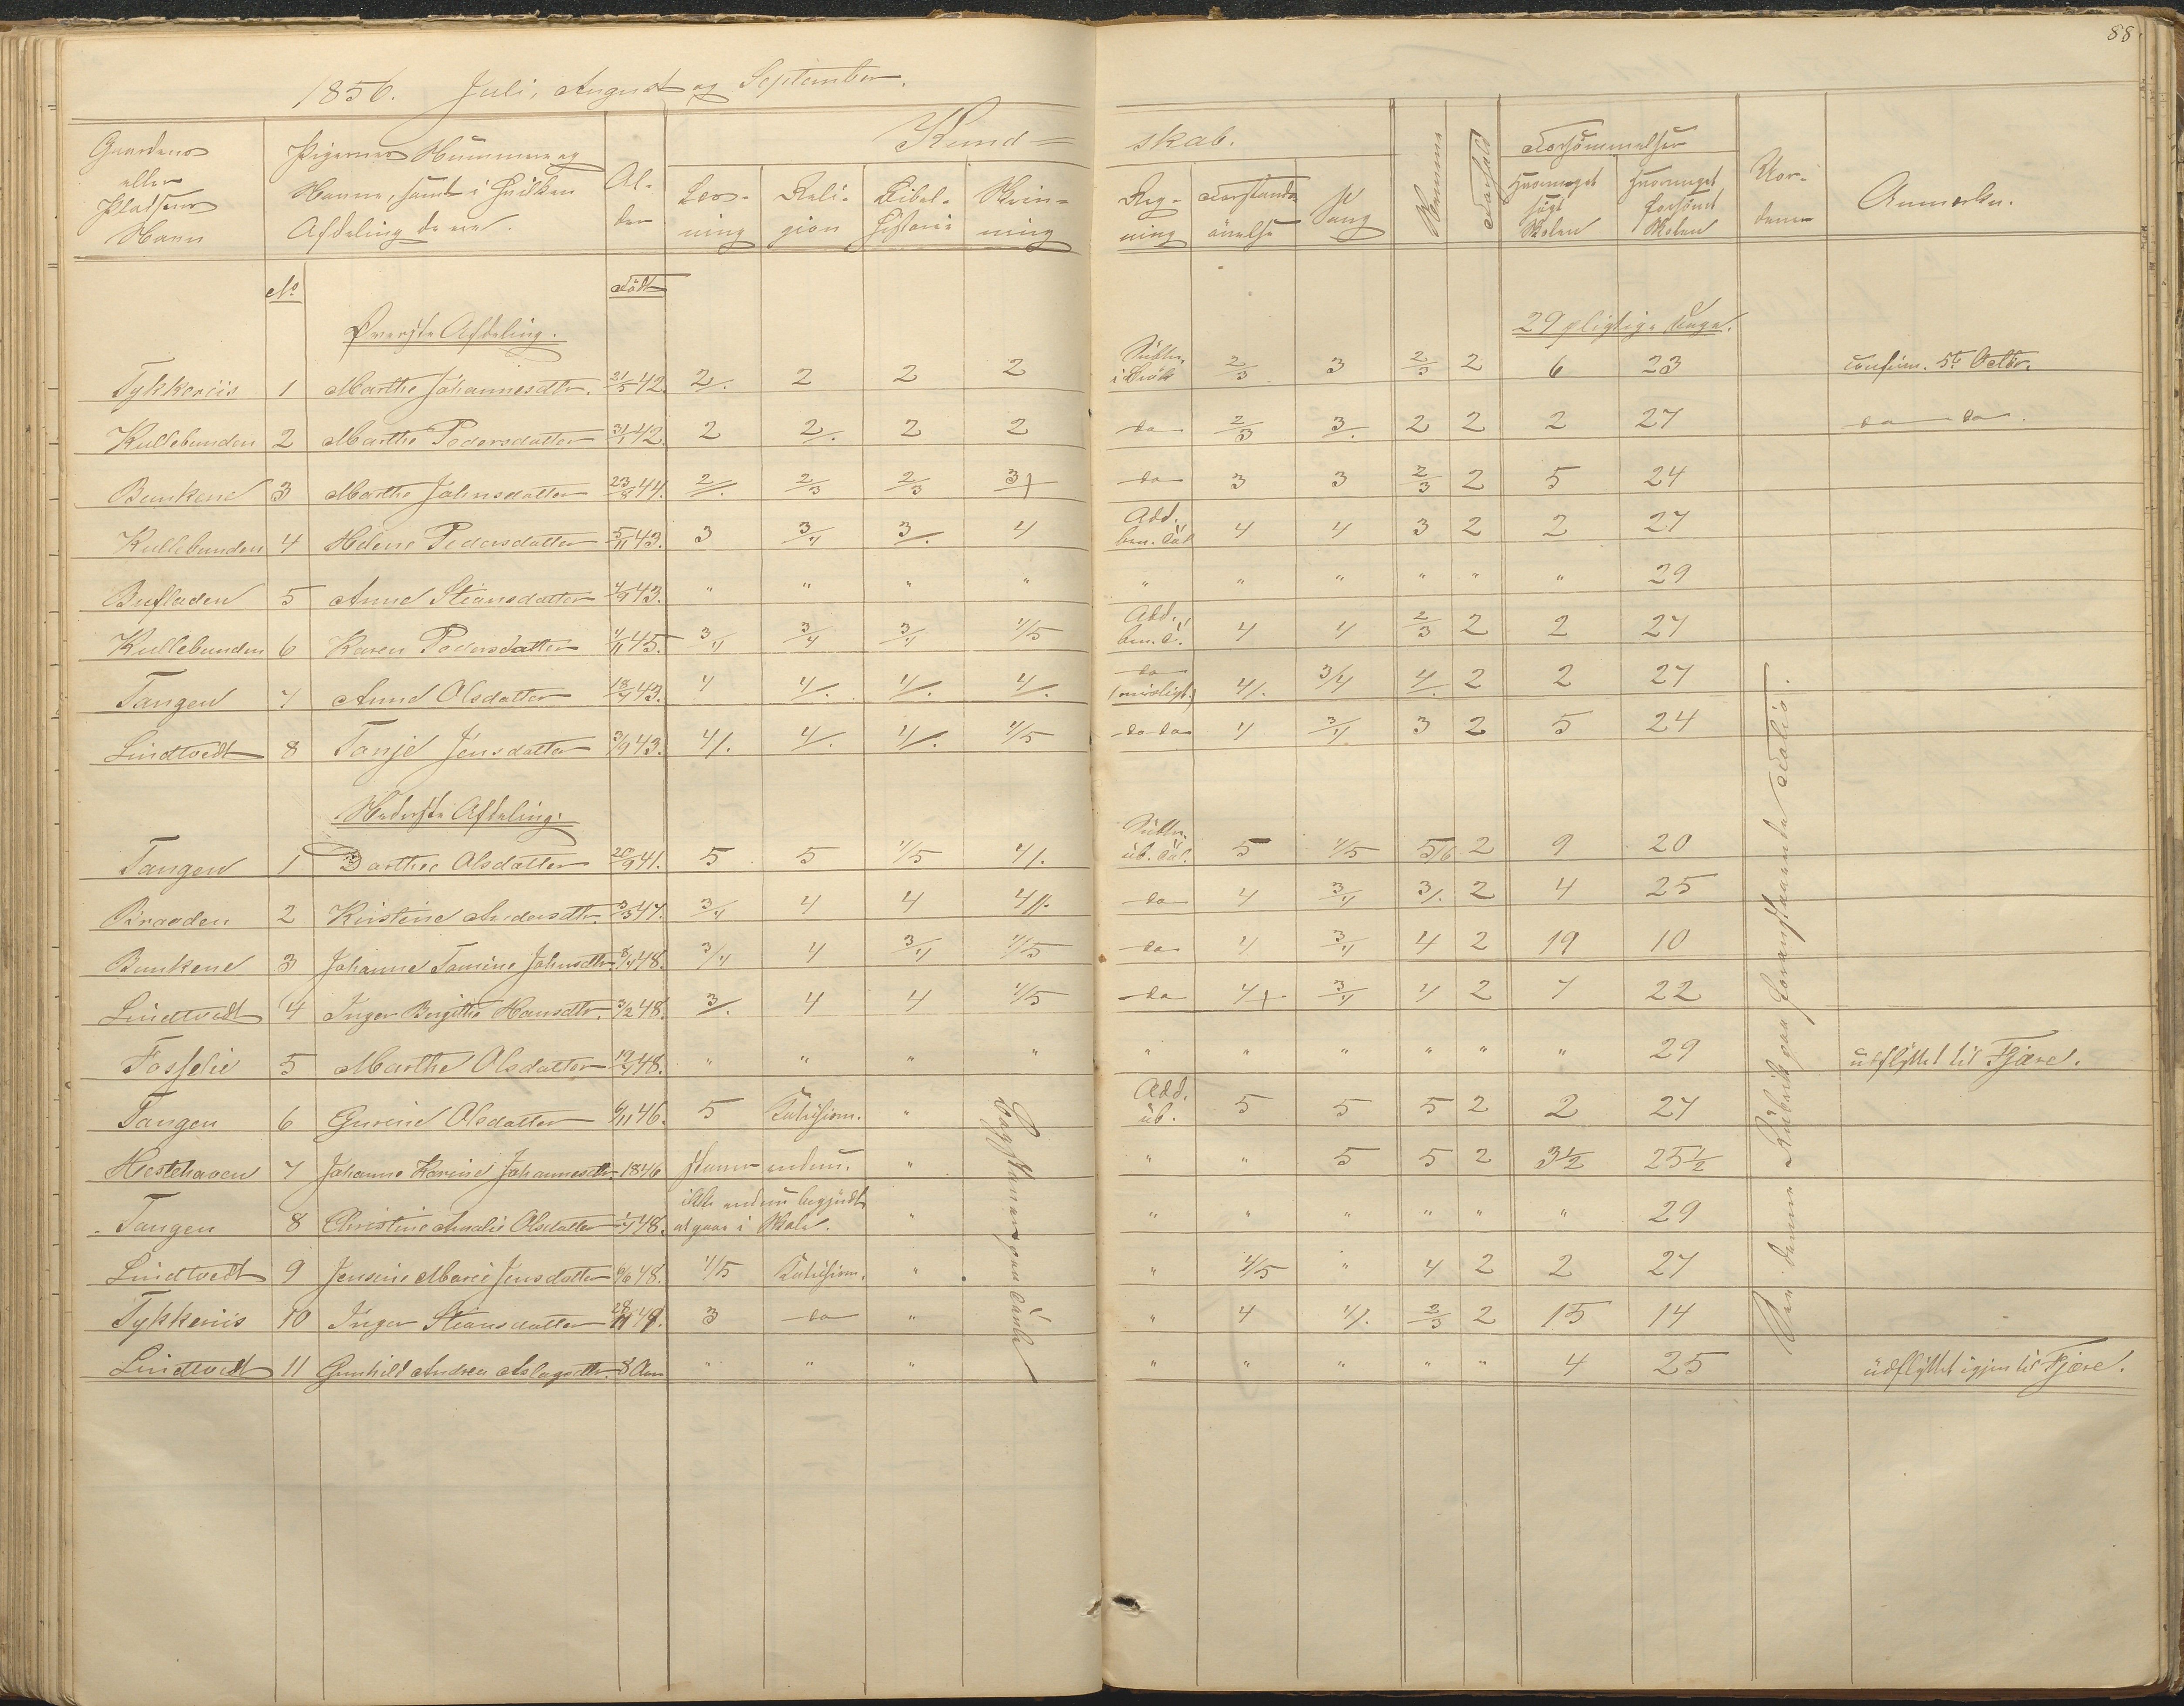 88.
1856. Juli, August og September.
Gaardens eller Pladsens Navn
Pigernes Nummere og Navne, samt i hvilken Afdeling de ere.
Alder
Kundskab.
Læsning
Religion
Bibelhistorie
Skrivning
Regning
Forstandsøvelse
Sang
Nemme
Forhold
Forsømmelser
Hvormeget søgt Skolen
Hvormeget forsømt Skolen
Anmærkn.
No
født
Øverste Afdeling. 29 pligtige Dage.
Tykkeriis 1 Marthe Johannesdtr. 21/5 42. 2/. 2 2 2 2/3 3 2/3 2 6 23 confirm. 5te Octbr.
Kullebunden 2 Marthe Pedersdatter 31/1 42. 2 2/. 2 2 do 2/3 3/. 2 2 2 27 do do.
Bunkene 3 Marthe Johnsdatter 23/8 44. 2//. 2/3 2/3 3+ do 3 3 2/3 2 5 24
Kullebunden 4 Helene Pedersdatter 5/11 43. 3 3/4 3/. 4 Add. 4 4 3 2 2 27
Bufladen 5 Anne Steansdatter 4/9 43. " " " " " " " " " " 29
Kullebunden 6 Karen Pedersdatter 4/11 45. 3/4 3/4 3/4 4/5 Add. 4 4 2/3 2 2 27
Tangen 7 Anne Olsdatter 18/7 43. 4 4/. 4/. 4/. do (misligt.) 4/. 3/4 4/. 2 2 27
Lindtvedt 8 Tanje Jensdatter 3/9 43. 4/. 4/. 4/. 4/5 do do 4 3/4 3 2 5 24
Nederste Afdeling.
Tangen 1 Dorthee Olsdatter 20/9 41. 5 5 4/5 4/. 5 4/5 5/6 2 9 20
Braaden 2 Kirstine Andersdtr. 3/3 47. 3/4 4 4 4//. do 4 3/4 3/. 2 4 25
Bunkene 3 Johanne Tomine Johnsdtr. 5/4 48. 3/4 4 3/4 4/5 do 4 3/4 4 2 19 10
Lindtvedt 4 Inger Birgithe Hansdtr. 3/2 48. 3/. 4 4 4/5 do 4+ 3/4 4 2 7 22
Fosselie 5 Marthe Olsdatter 19/4 48. " " " " " " " " " " 29 udflyttet til Fjære.
Tangen 6 Gurine Olsdatter 6/11 46. 5 Katechism. " Add. üb. 5 5 5 2 2 27
Hestehaven 7 Johanne Karine Johannesdtr. 1846 staver endnu. " " " 5 5 2 3½ 25½
Tangen 8 Christine Amalie Olsdatter 1/7 48. ikke endnu begyndt at gaae i Skole. " " " " " " " 29
Lindtvedt 9 Jensine Marie Jensdatter 6/6 48. 4/5 Katechism. " " 4/5 " 4 2 2 27
Tykkeriis 10 Inger Steansdatter 28/11 49. 3 do " " 4 4/. 2/3 2 15 14
Lindtvedt 11 Gunhild Andrea Aslagsdtr. 8 Aar " " " " " " " " 4 25 udflyttet igjen til Fjære.
Bogstaver paa Tavle
denne Rubrik paa foranstaaende Folio.